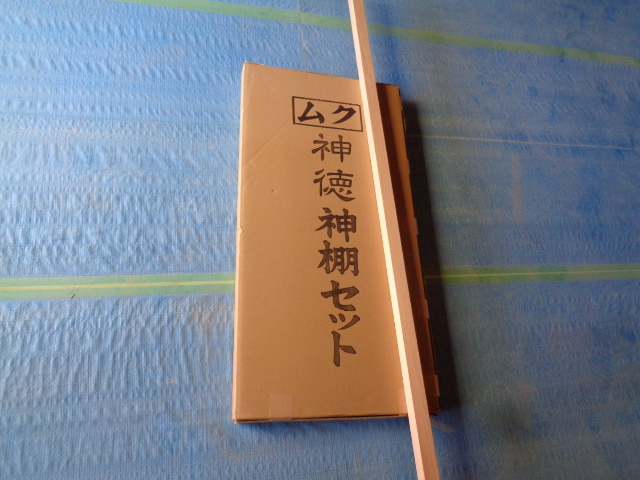 ムク
神徳神棚セット